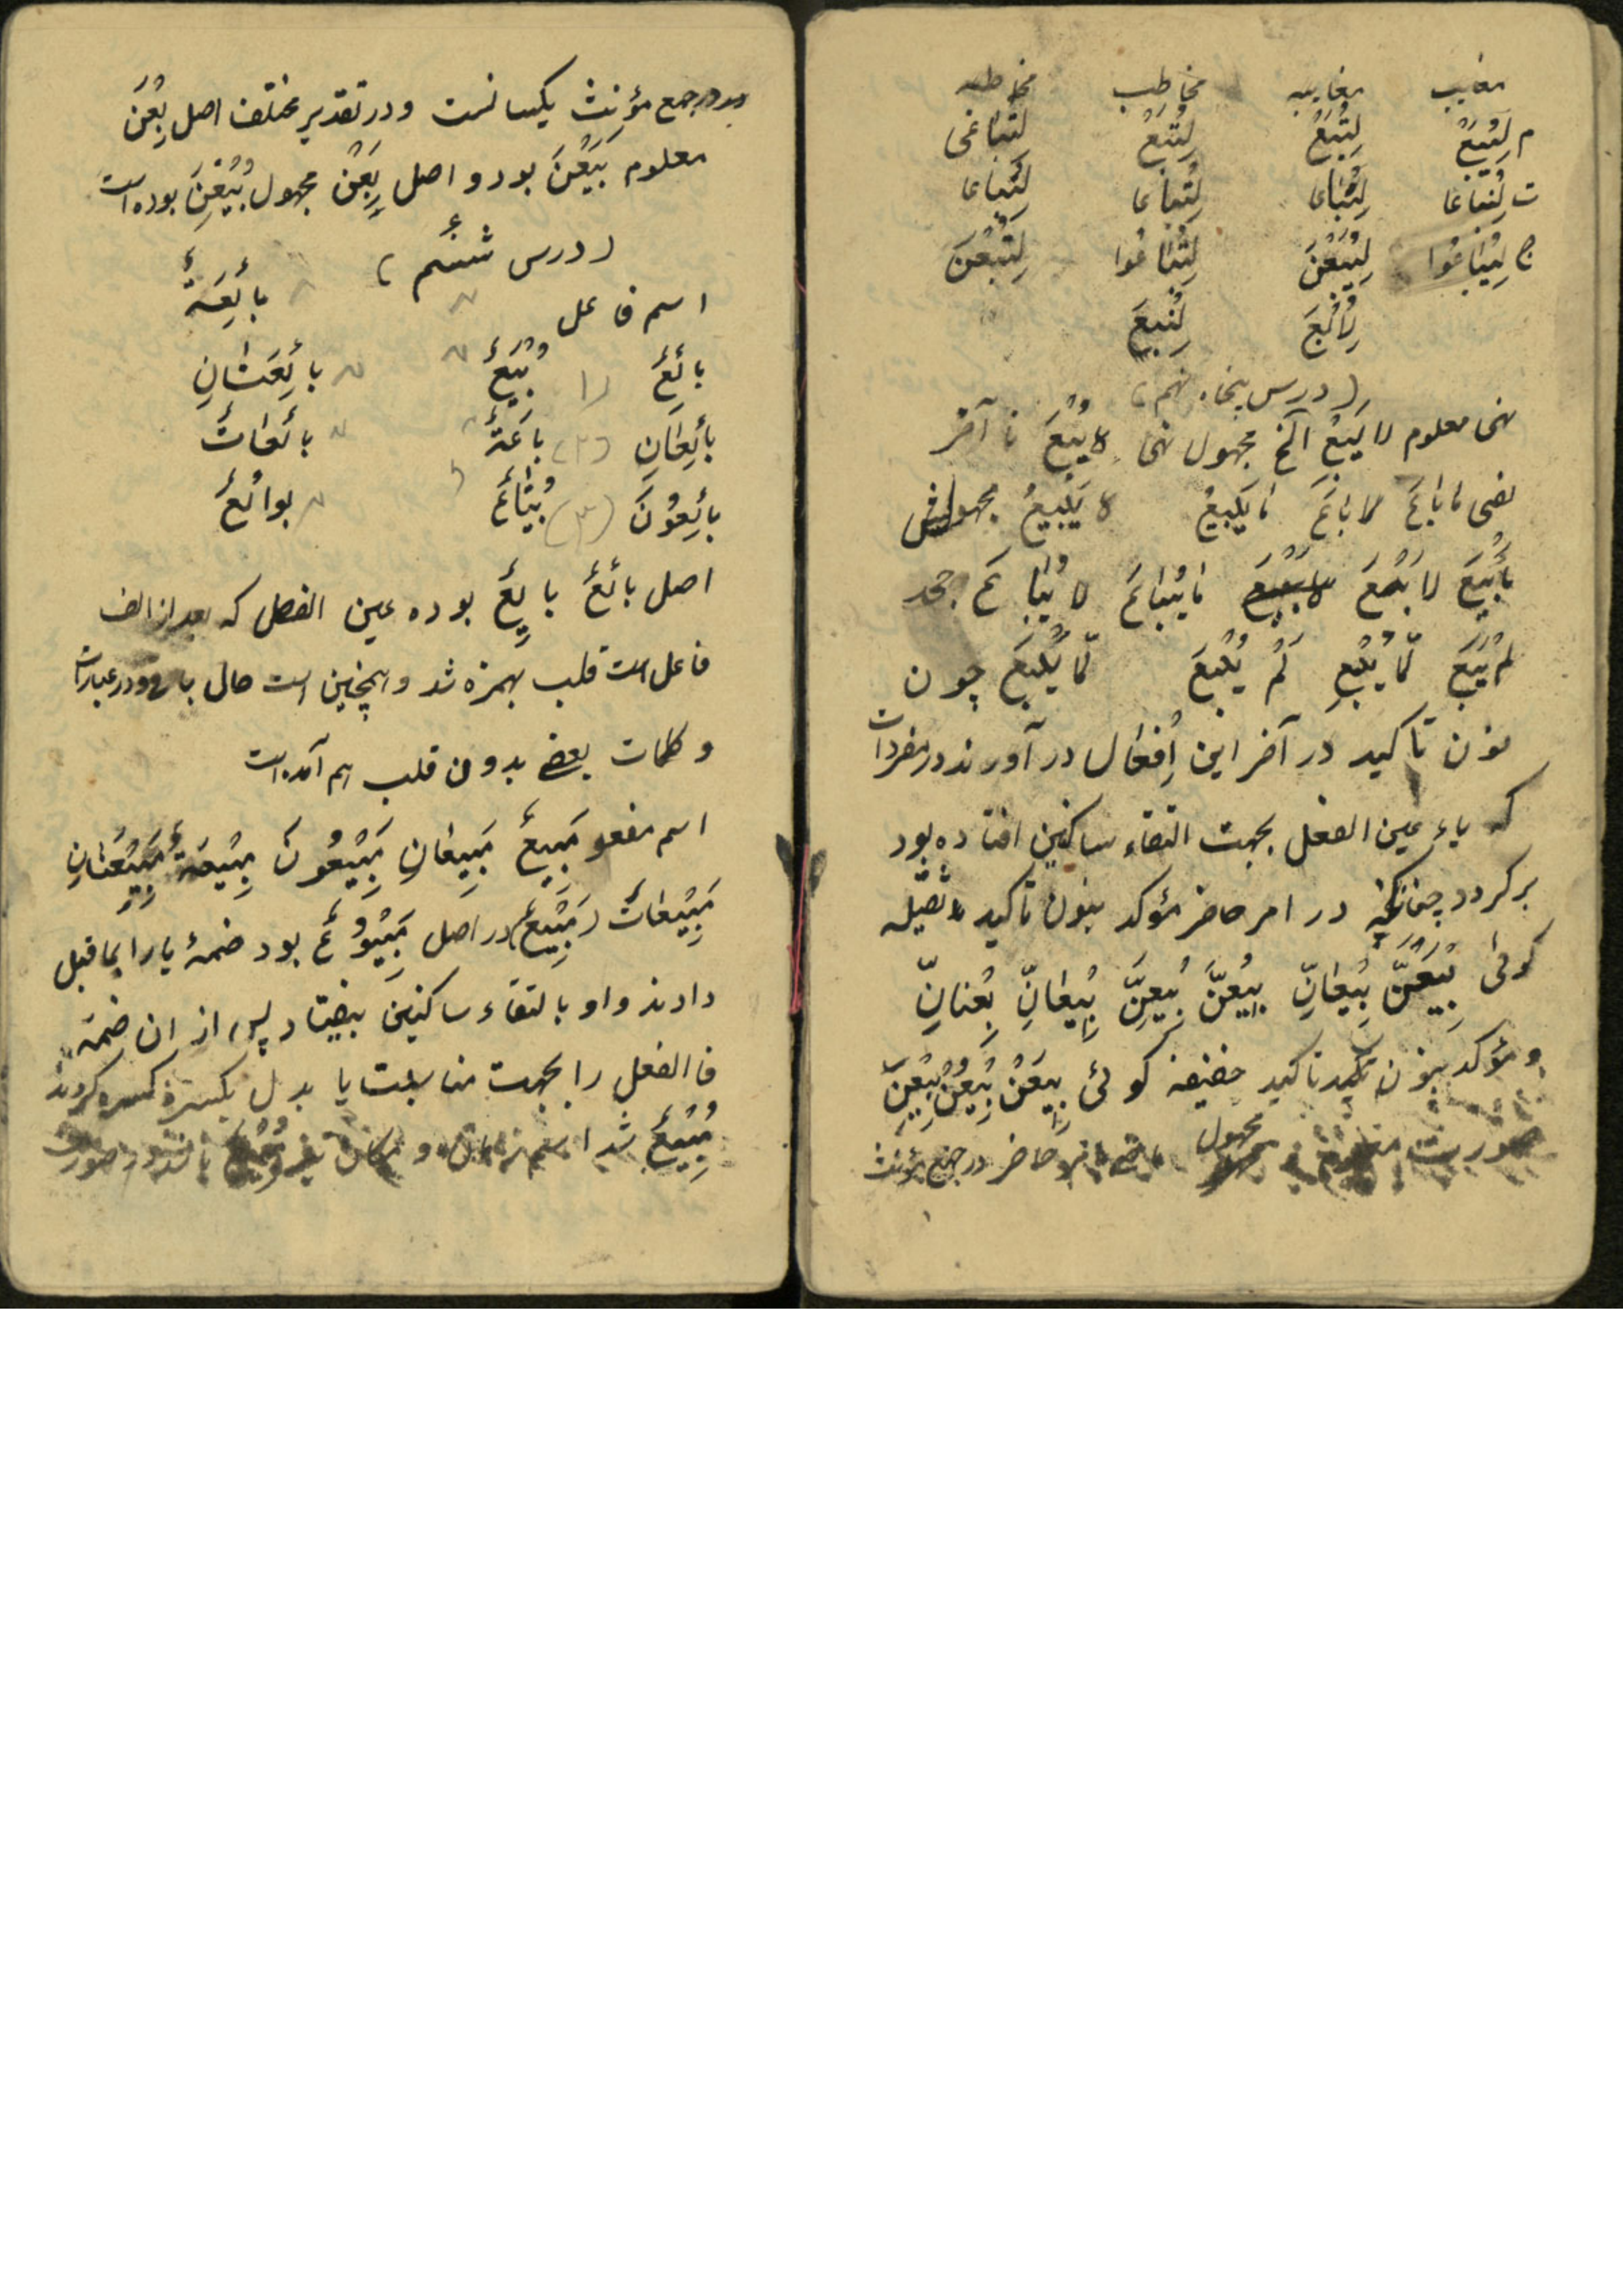 مغایب مغایبه مخاطب مخاطبه
م لِیُبَعْ لِتُبَعْ لِتُبَعْ لِتُبَاعِی
ت لِیُبَاعَا لِتُبَاعَا لِتُبَاعَا لِتُبَاعَا
ج لِیُبَاعُوا لِیُبَعْنَ لِتُبَاعُوا لِتُبَعْنَ
لِاُبَعْ لِنُبَعْ
(درس پنجاه نهم)
نهی معلوم لا یَبِعْ الخ مجهول نهی لا یُبَعْ تا آخر
نفی ما باعَ لا باعَ ما یَبِیعُ لا یَبِیعُ مجهولش
ما بُیِعَ لا بُیِعَ ما یُباعُ لا یُباعُ جحد
لَمْ یَبِعْ لَمّا یَبِعْ لَمْ یُبَعْ لَمّا یُبَعْ چون
نون تاکید در آخر این اَفعال در آورند در مفردات
که یاء عین الفعل بجهت التقاء ساکنین افتاده بود
برگردد چنانکه در امر حاضر مؤکد بنون تاکید ثقیله
گوئی بِیعَنَّ بِیعانِّ بِیعُنَّ بِیعِنَّ بِیعانِّ بِعْنانِّ
و مؤکد بنون تاکید خفیفه گوئی بِیعَنْ بِیعُنْ بِیعِنْ
صورت مجهول حاضر در جمع مؤنث
در جمع مؤنث یکسانست و در تقدیر مختلف اصل بِعْنَ
معلوم بَیَعْنَ بود و اصل بِعْنَ مجهول بُیِعْنَ بوده است
(درس شصتم)
اسم فاعل بائِعَةٌ
بائِعٌ (۱) بُیَّعٌ بائِعَتانِ
بائِعانِ (۲) باعَةٌ بائِعاتٌ
بائِعُونَ (۳) بُیّاعٌ بوائِعُ
اصل بائِعٌ بایِعٌ بوده عین الفعل که بعد از الف
فاعل است قلب بهمزه شد و همچنین است حال باقی و در عبارت
و کلمات بعضی بدون قلب هم آمده است
اسم مفعو مَبِیعٌ مَبِیعانِ مَبِیعُونَ مَبِیعَةٌ مَبِیعَتانِ
مَبِیعاتٌ (مَبِیعٌ) در اصل مَبْیُوعٌ بود ضمهٔ یا را بماقبل
دادند واو بالتقاء ساکنین بیفتاد پس از ان ضمه
فاالفعل را بجهت مناسبت یا بدل بکسره کردند
مَبِیعٌ شد اسم زمان و مکان